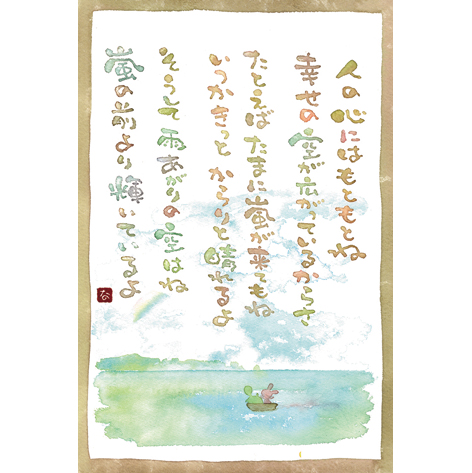 人の心にはもともとね
幸せの空が広がっているからさ
たとえばたまに嵐が来てもね
いつかきっと からりと晴れるよ
そうして雨あがりの空はね
嵐の前より輝いているよ
な